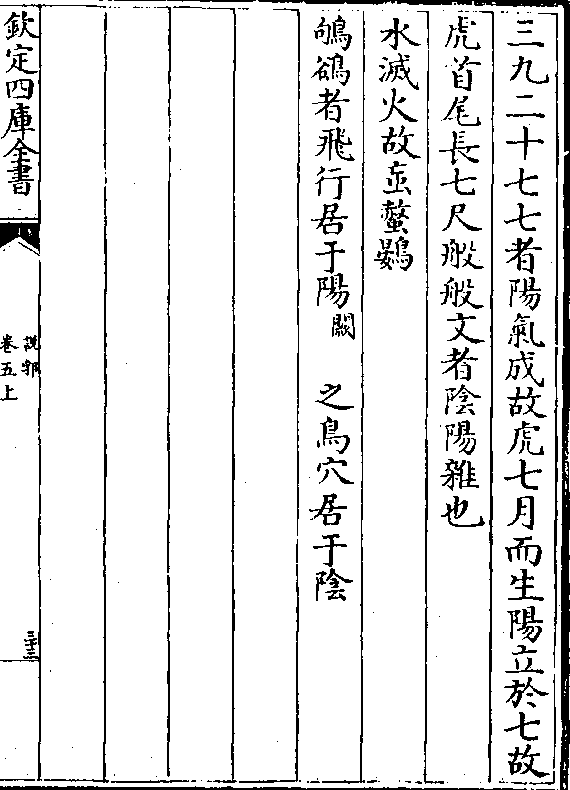 三九二十七七者陽氣成故虎七月而生陽立於七故
虎首尾長七尺般般文者陰陽雜也
水滅火故䖝螫鷃
鴝鵒者飛行居于陽闕 之鳥穴居于陰
欽定四庫全書
說郛
卷五上
三十三